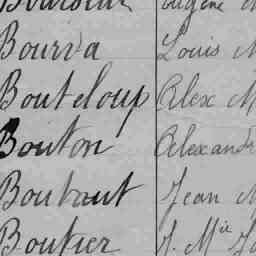 Eugène
Bourva Louis M
Bouteloup Alex M
Bouton Alexandr
Boutaut Jean M
Boutier J. Mie